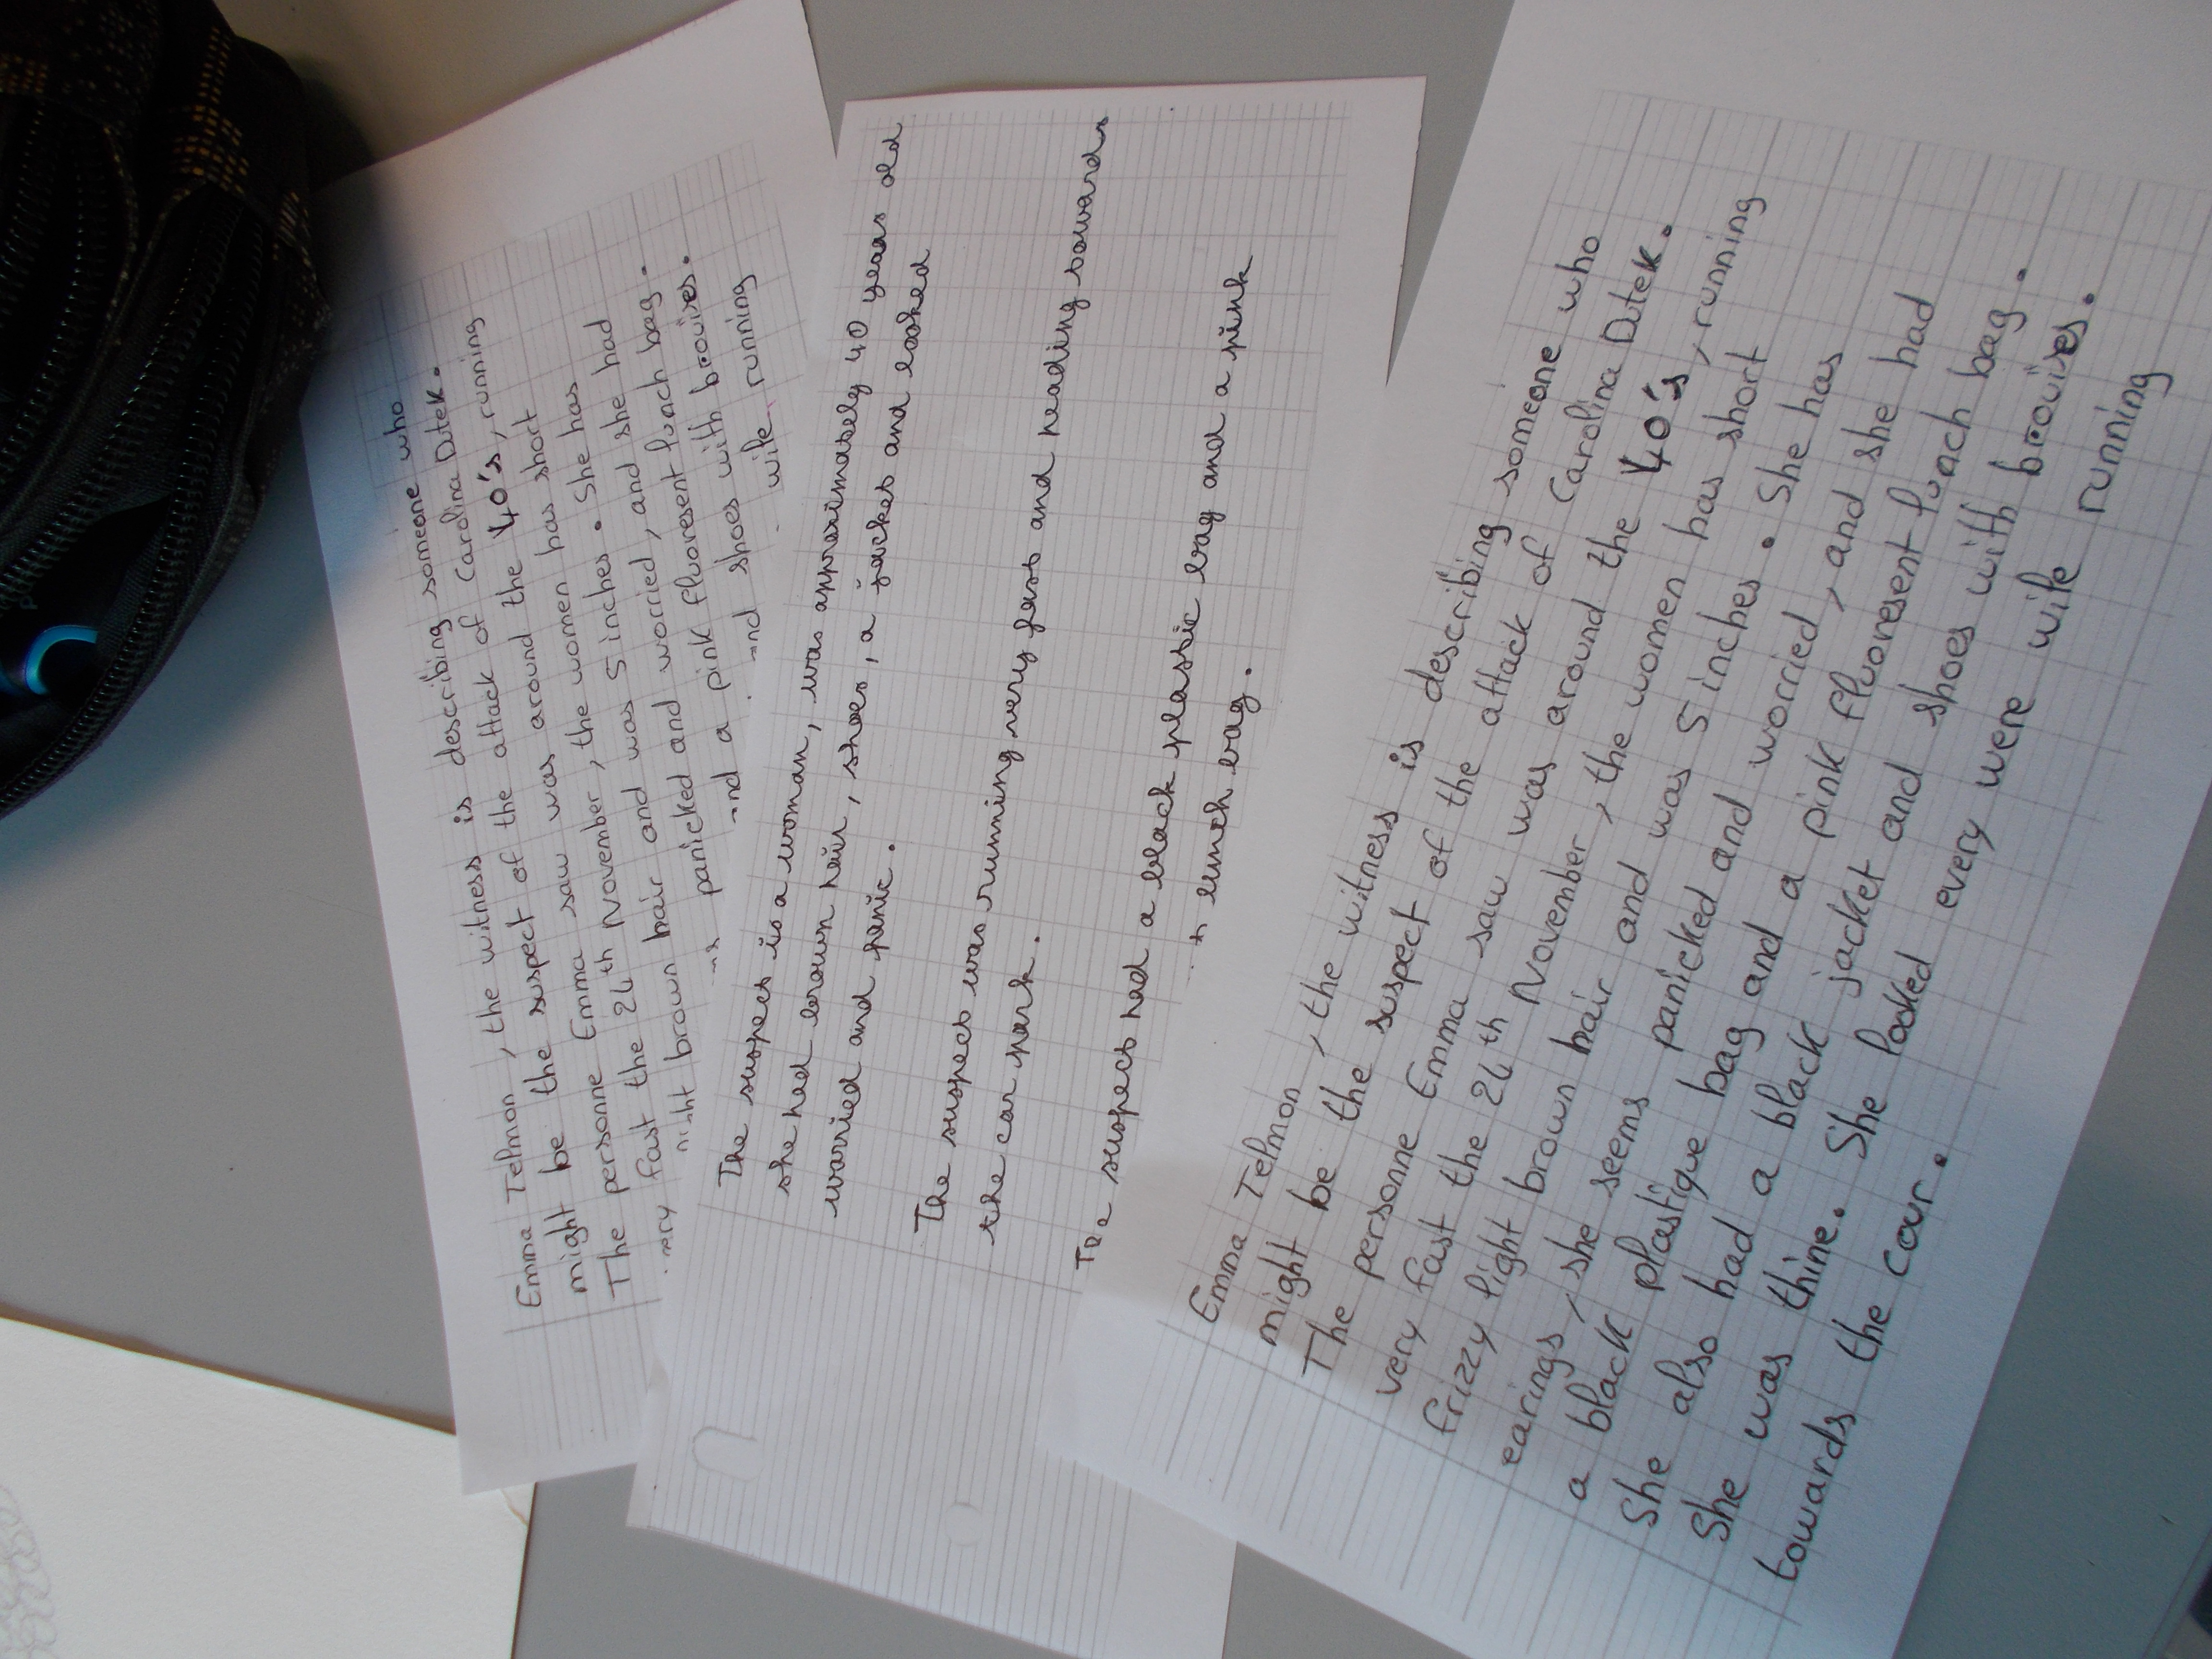 Emma Telmon, the witness is describing someone who
might be the suspect of the attack of Carolina Dutek.
The personne Emma saw was around the 40's, running
fast the 24th November, the women has short
brown hair and was 5 inches. She has
panicked and worried, and she had
and a pink fluoresent lunch bag.
and shoes with brouises.
wife running
The suspect is a woman, was approximately 40 years old
she had brown hair, shoes, a jacket and looked
worried and panic.
The suspect was running very fast and heading towards
the car park.
The suspect had a black plastic bag and a pink
lunch bag.
Emma Telmon, the witness is describing someone who
might be the suspect of the attack of Carolina Dutek.
The personne Emma saw was around the 40's, running
very fast the 24th November, the women has short
frizzy light brown hair and was 5 inches. She has
earings, she seems panicked and worried, and she had
a black plastique bag and a pink fluoresent lunch bag.
She also had a black jacket and shoes with brouises.
She was thine. She looked every were wile running
towards the car.